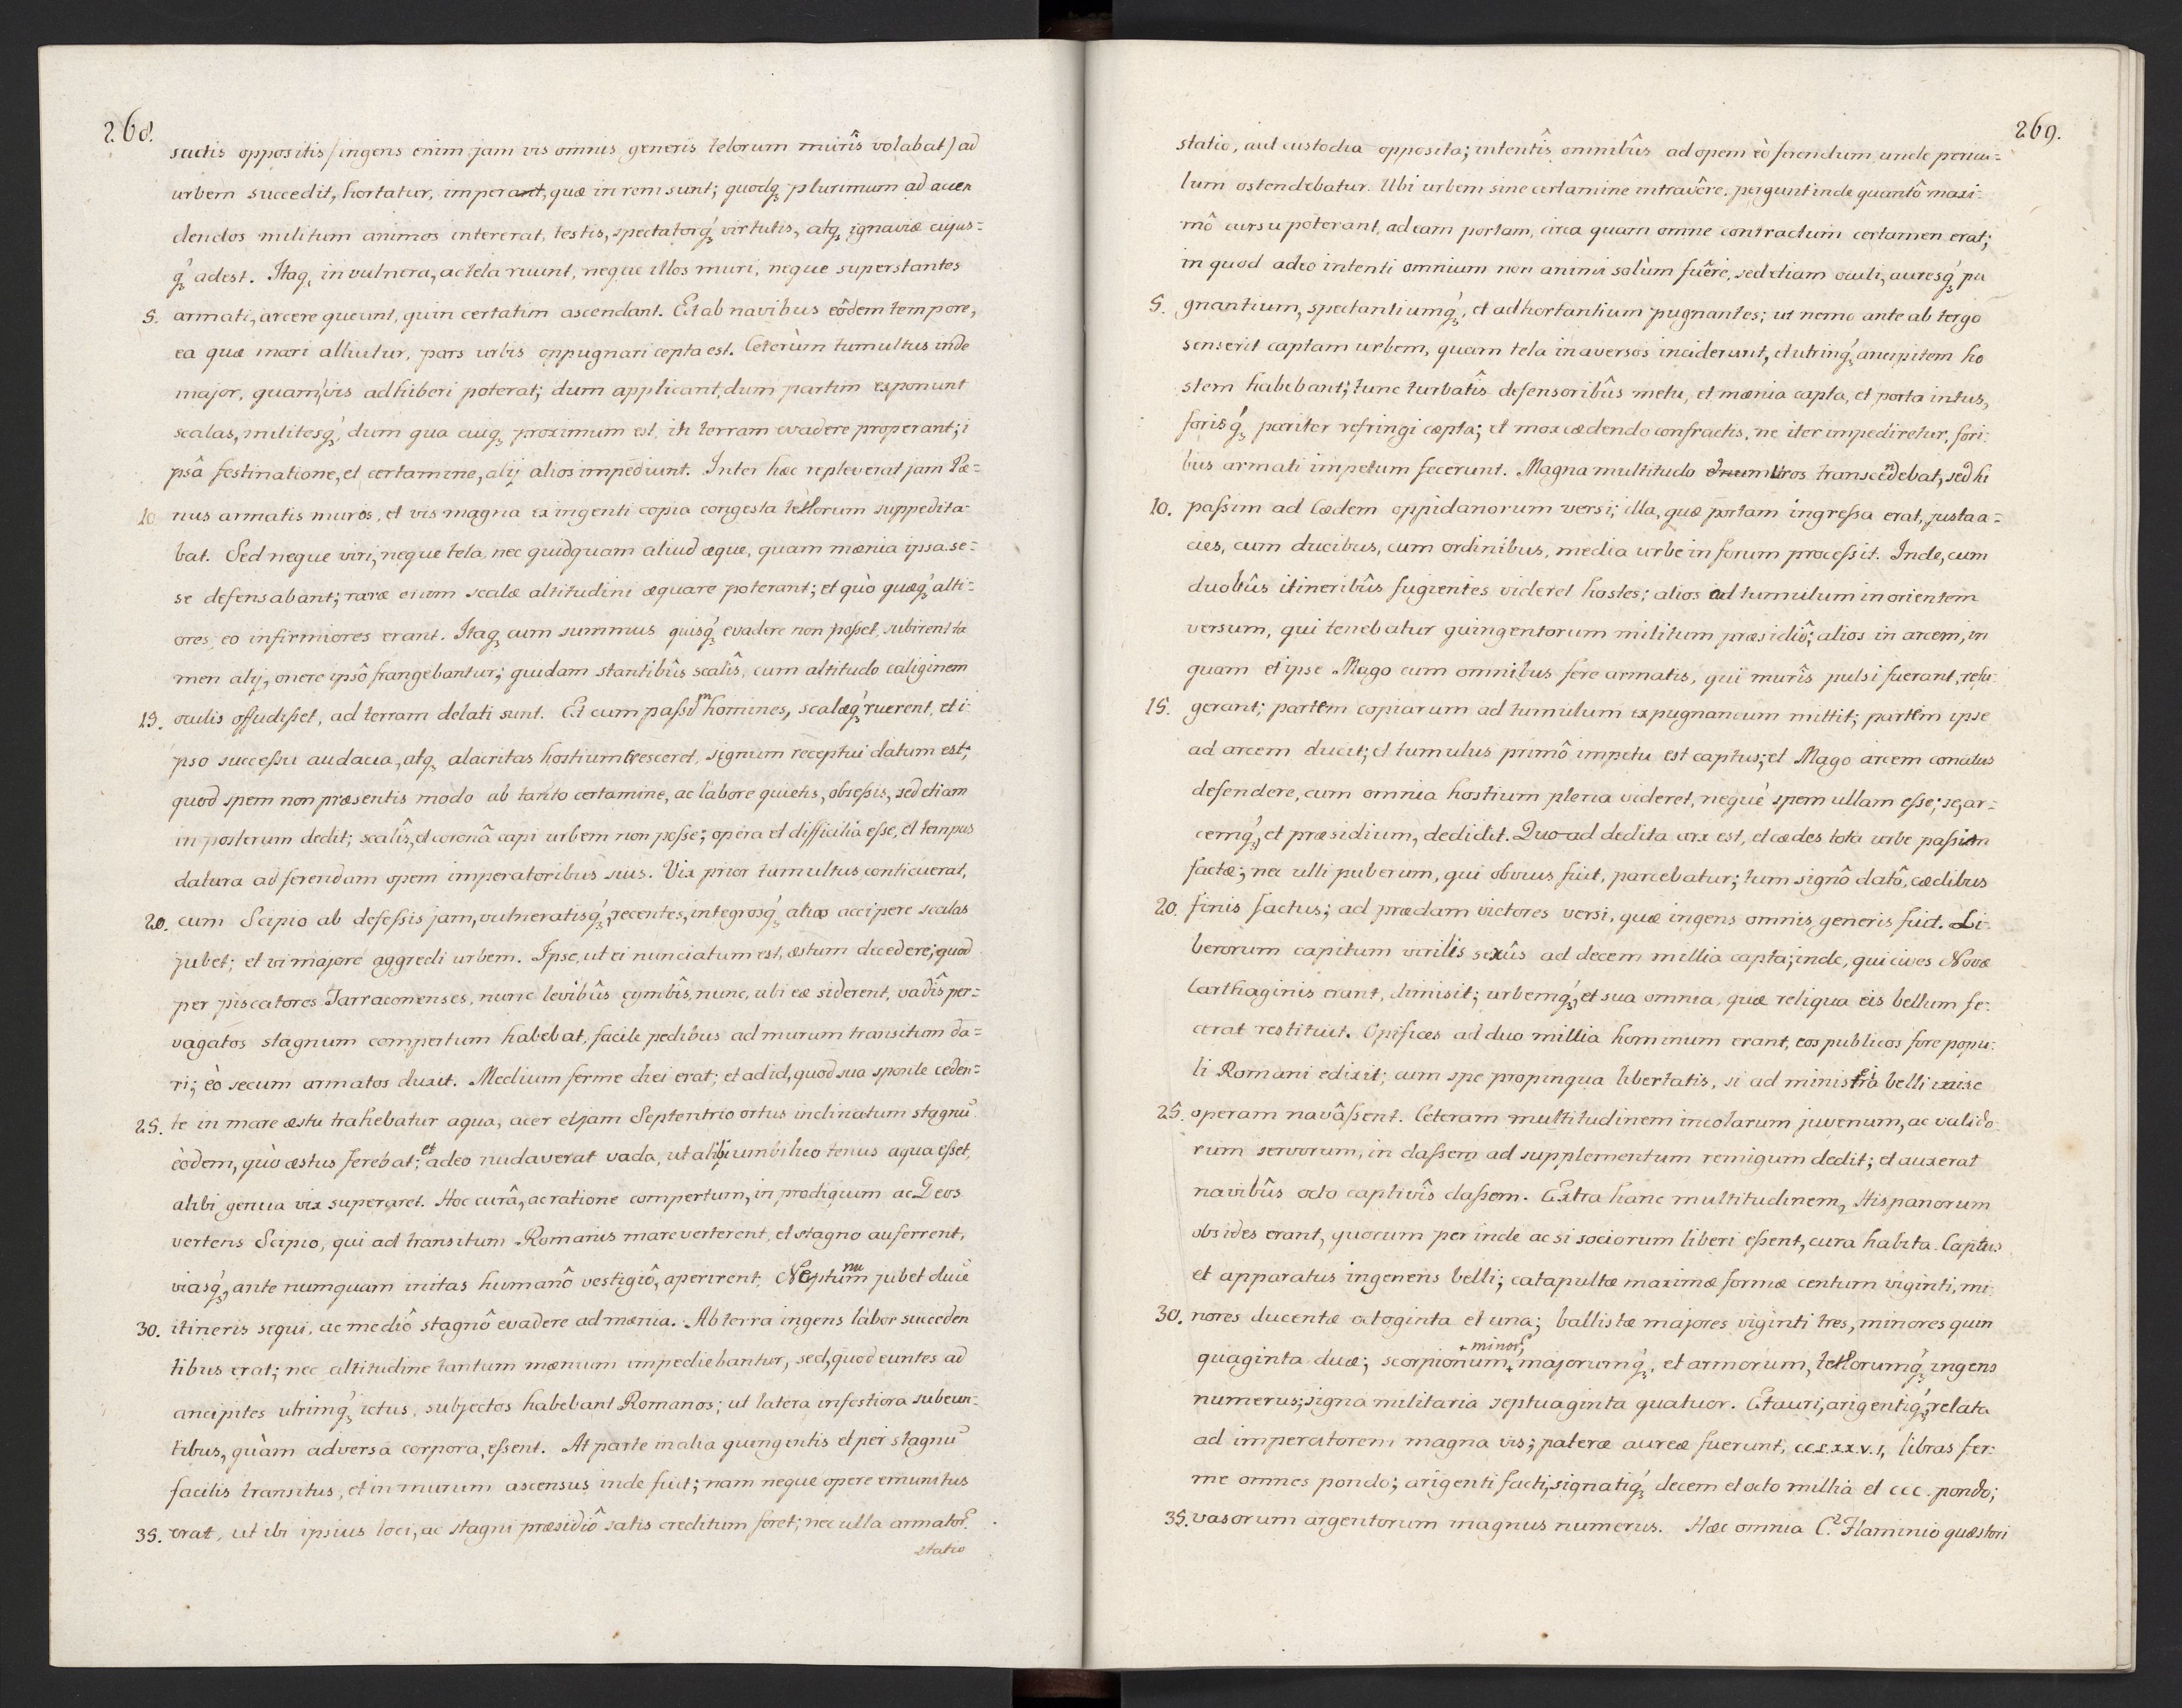 268.
suetis oppositis (ingens enim jam vis omnis generis telorum murîs volabat) ad
urbem succedit, hortatur, imperant, quæ in rem sunt; quodq₃ plurimum ad accen
dendos militum animos intererat, testis, spectatorq́₃ virtutis, atq₃ ignaviæ cujus=
q́₃ adest. Itaq₃ in vulnera, ac tela ruunt, neque illos muri, neque superstantes
5. armati, arcere queunt, quin certatim ascendant. Et ab navibus eôdem tempore,
ea quæ mari alluitur, pars urbis oppugnari cepta est. Ceterùm tumultus inde
major, quam, vis adhiberi poterat; dum applicant, dum partim exponunt
scalas, militesq́₃, dum qua cuiq₃ proximum est, in terram evadere properant; i
psâ festinatione, et certamine, alij alios impediunt. Inter hæc repleverat jam Pæ=
10 nus armatis muros, et vis magna ex ingenti copia congesta tellorum suppedita=
bat. Sed neque viri, neque tela, nec quidquam aliud æque, quam mænia ipsa se=
se defensabant; raræ enim scalæ altitudini æquare poterant; et quò quæq́₃ alti=
ores, eo infirmiores erant. Itaq₃ cum summus quisq́₃ evadere non posset, subirent ta
men alij, onere ipsô frangebantur; quidam stantibûs scalîs, cum altitudo caliginem
15. oculis offudisset, ad terram delati sunt. Et cum passim homines, scalæq́₃ ruerent, et i
pso successu audacia, atq₃ alacritas hostium cresceret, signum receptui datum est;
quod spem non præsentis modo ab tanto certamine, ac labore quietis, obsessis, sed etiam
in posterum dedit; scalîs, et coronâ capi urbem non posse; opera et difficilia esse, et tempus
datura ad ferendam opem imperatoribus suis. Vix prior tumultus conticuerat,
20. cum Scipio ab defessis jam, vulneratisq́₃, recentes, integrosq́₃ alios accipere scalas
jubet; et vi majore aggredi urbem. Ipse, ut ei nunciatum est, æstum decedere; quod
per piscatores Tarraconenses, nunc levibûs cymbîs, nunc, ubi eæ siderent, vadîs per=
vagatos stagnum compertum habebat, facile pedibus ad murum transitum da=
ri; eò secum armatos duxit. Medium ferme diei erat; et ad id, quod sua sponte ceden=
25. te in mare æstu trahebatur aqua, acer etjam Septentrio ortus inclinatum stagnū
eòdem, quò æstus ferebat; et adeo nudaverat vada, ut alibi umbilico tenus aqua esset,
alibi genua vix superaret. Hoc curâ, ac ratione compertum, in prodigium ac Deos
vertens Scipio, qui ad transitum Romanis mare verterent, et stagno auferrent,
viasq́₃, ante numquam initas humanô vestigiô, aperirent, Neptunum jubet ducē
30. itineris sequi, ac mediô stagnô evadere ad mænia. Ab terra ingens labor succeden
tibus erat; nec altitudine tantum mænium impediebantur, sed, quod euntes ad
ancipites utrimq́₃ ictus, subjectos habebant Romanos; ut latera infestiora subeun=
tibus, quàm adversa corpora, essent. At parte in alia quingentis et per stagnū
facilis transitus, et in murum ascensus inde fuit; nam neque opere emunitus
35. erat, ut ibi ipsius loci, ac stagni præsidiô satis creditum foret; nec ulla armator₂
statio
269.
statio, aut custodia opposita; intentîs omnibûs ad opem eò ferendum, unde pericu=
lum ostendebatur. Ubi urbem sine certamine intravêre, pergunt inde quantô maxi=
mô cursu poterant, ad eam portam, circa quam omne contractum certamen erat;
in quod adeo intenti omnium non animi solùm fuêre, sed etiam oculi, auresq́₃ pu
5. gnantium, spectantiumq́₃, et adhortantium pugnantes; ut nemo ante ab tergo
senserit captam urbem, quam tela in aversos inciderunt, et utrinq́₃ ancipitem ho
stem habebant; tunc turbatîs defensoribûs metu, et mænia capta, et porta intus,
forisq́₃ pariter refringi cæpta; et mox cædendo confractis, ne iter impediretur, fori=
bus armati impetum fecerunt. Magna multitudo muros transcendebat, sed hi
10. passim ad Cædem oppidanorum versi; illa, quæ portam ingressa erat, justa a=
cies, cum ducibus, cum ordinibus, media urbe in forum processit. Inde, cum
duobûs itineribûs fugientes videret hostes; alios ad tumulum in orientem
versum, qui tenebatur quingentorum militum præsidiô; alios in arcem, in
quam et ipse Mago cum omnibus fere armatis, qui murîs pulsi fuerant, refu=
15. gerant; partem copiarum ad tumulum expugnandum mittit; partem ipse
ad arcem ducit; et tumulus primô impetu est captus; et Mago arcem conatus
defendere, cum omnia hostium plena videret, neque spem ullam esse; se, ar=
cemq́₃, et præsidium, dedidit. Quo-ad dedita arx est, et cædes tota urbe passim
factæ; nec ulli puberum, qui obvius fuit, parcebatur; tum signô datô, cædibus
20. finis factus; ad prædam victores versi, quæ ingens omnis generis fuit. Li=
berorum capitum virilis sexûs ad decem millia capta; inde, qui cives Novæ
Carthaginis erant, dimisit; urbemq́₃, et sua omnia, quæ reliqua eis bellum fe=
cerat restituit. Opifices ad duo millia hominum erant, eos publicos fore popu=
li Romani edixit; cum spe propinqua libertatis, si ad ministeria belli enixe
25. operam navâssent. Ceteram multitudinem incolarum juvenum, ac valido=
rum servorum, in classem ad supplementum remigum dedit; et auxerat
navibûs octo captivîs classem. Extra hanc multitudinem, Hispanorum
obsides erant, quorum per inde ac si sociorum liberi essent, cura habita. Captus
et apparatus ingenens belli; catapultæ maximæ formæ centum viginti, mi=
30. nores ducentæ octoginta et una; ballistæ majores viginti tres, minores quin
quaginta duæ; scorpionum + minor₂ + majorumq́₃, et armorum, tellorumq́₃ ingens
numerus; signa militaria septuaginta quatuor. Et auri, arigentiq́₃, relata
ad imperatorem magna vis; pateræ aureæ fuerunt, CCLXXVI, libras fer=
me omnes pondo; arigenti facti, signatiq́₃ decem et octo millia et CCC. pondo;
35. vasorum argentorum magnus numerus. Hæc omnia C.² Flaminio quæstori